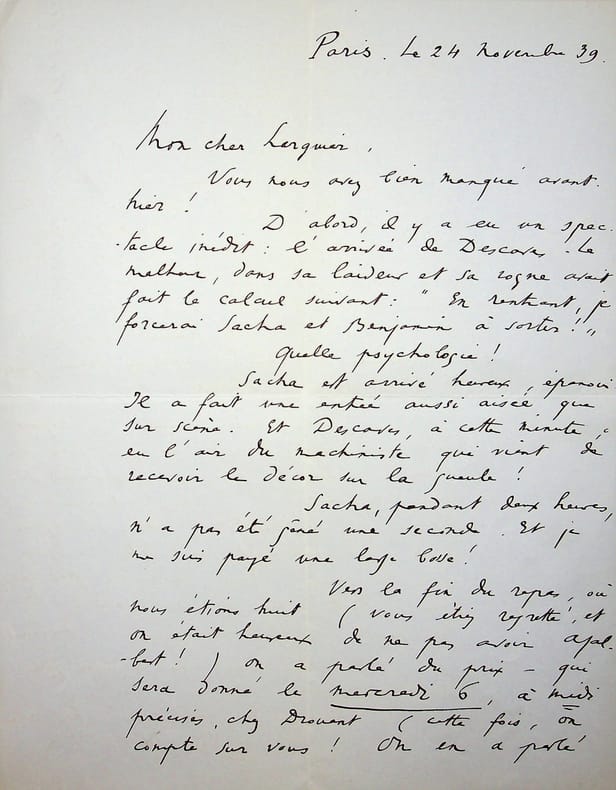 Paris. Le 24 Novembre 39.
Mon cher Larguier,
Vous nous avez bien manqué avant-
hier !
D'abord, il y a eu un spec-
-tacle inédit : l'arrivée de Descaves. Le
malheur, dans sa laideur et sa rogne avait
fait le calcul suivant : " En rentrant, je
forcerai Sacha et Benjamin à sortir ! „
Quelle psychologie !
Sacha est arrivé heureux, épanoui
Il a fait une entrée aussi aisée que
sur scène. Et Descaves, à cette minute,
eu l'air du machiniste qui vient de
recevoir le décor sur la gueule !
Sacha, pendant deux heures,
n'a pas été gêné une seconde. Et je
me suis payé une large
Vers la fin du repas, où
nous étions huit ( vous étiez regretté, et
on était heureux de ne pas avoir Ajal-
-bert ! ) on a parlé du prix - qui
sera donné le mercredi 6, à midi
précises, chez Drouant ( cette fois, on
compte sur vous ! On en a parlé